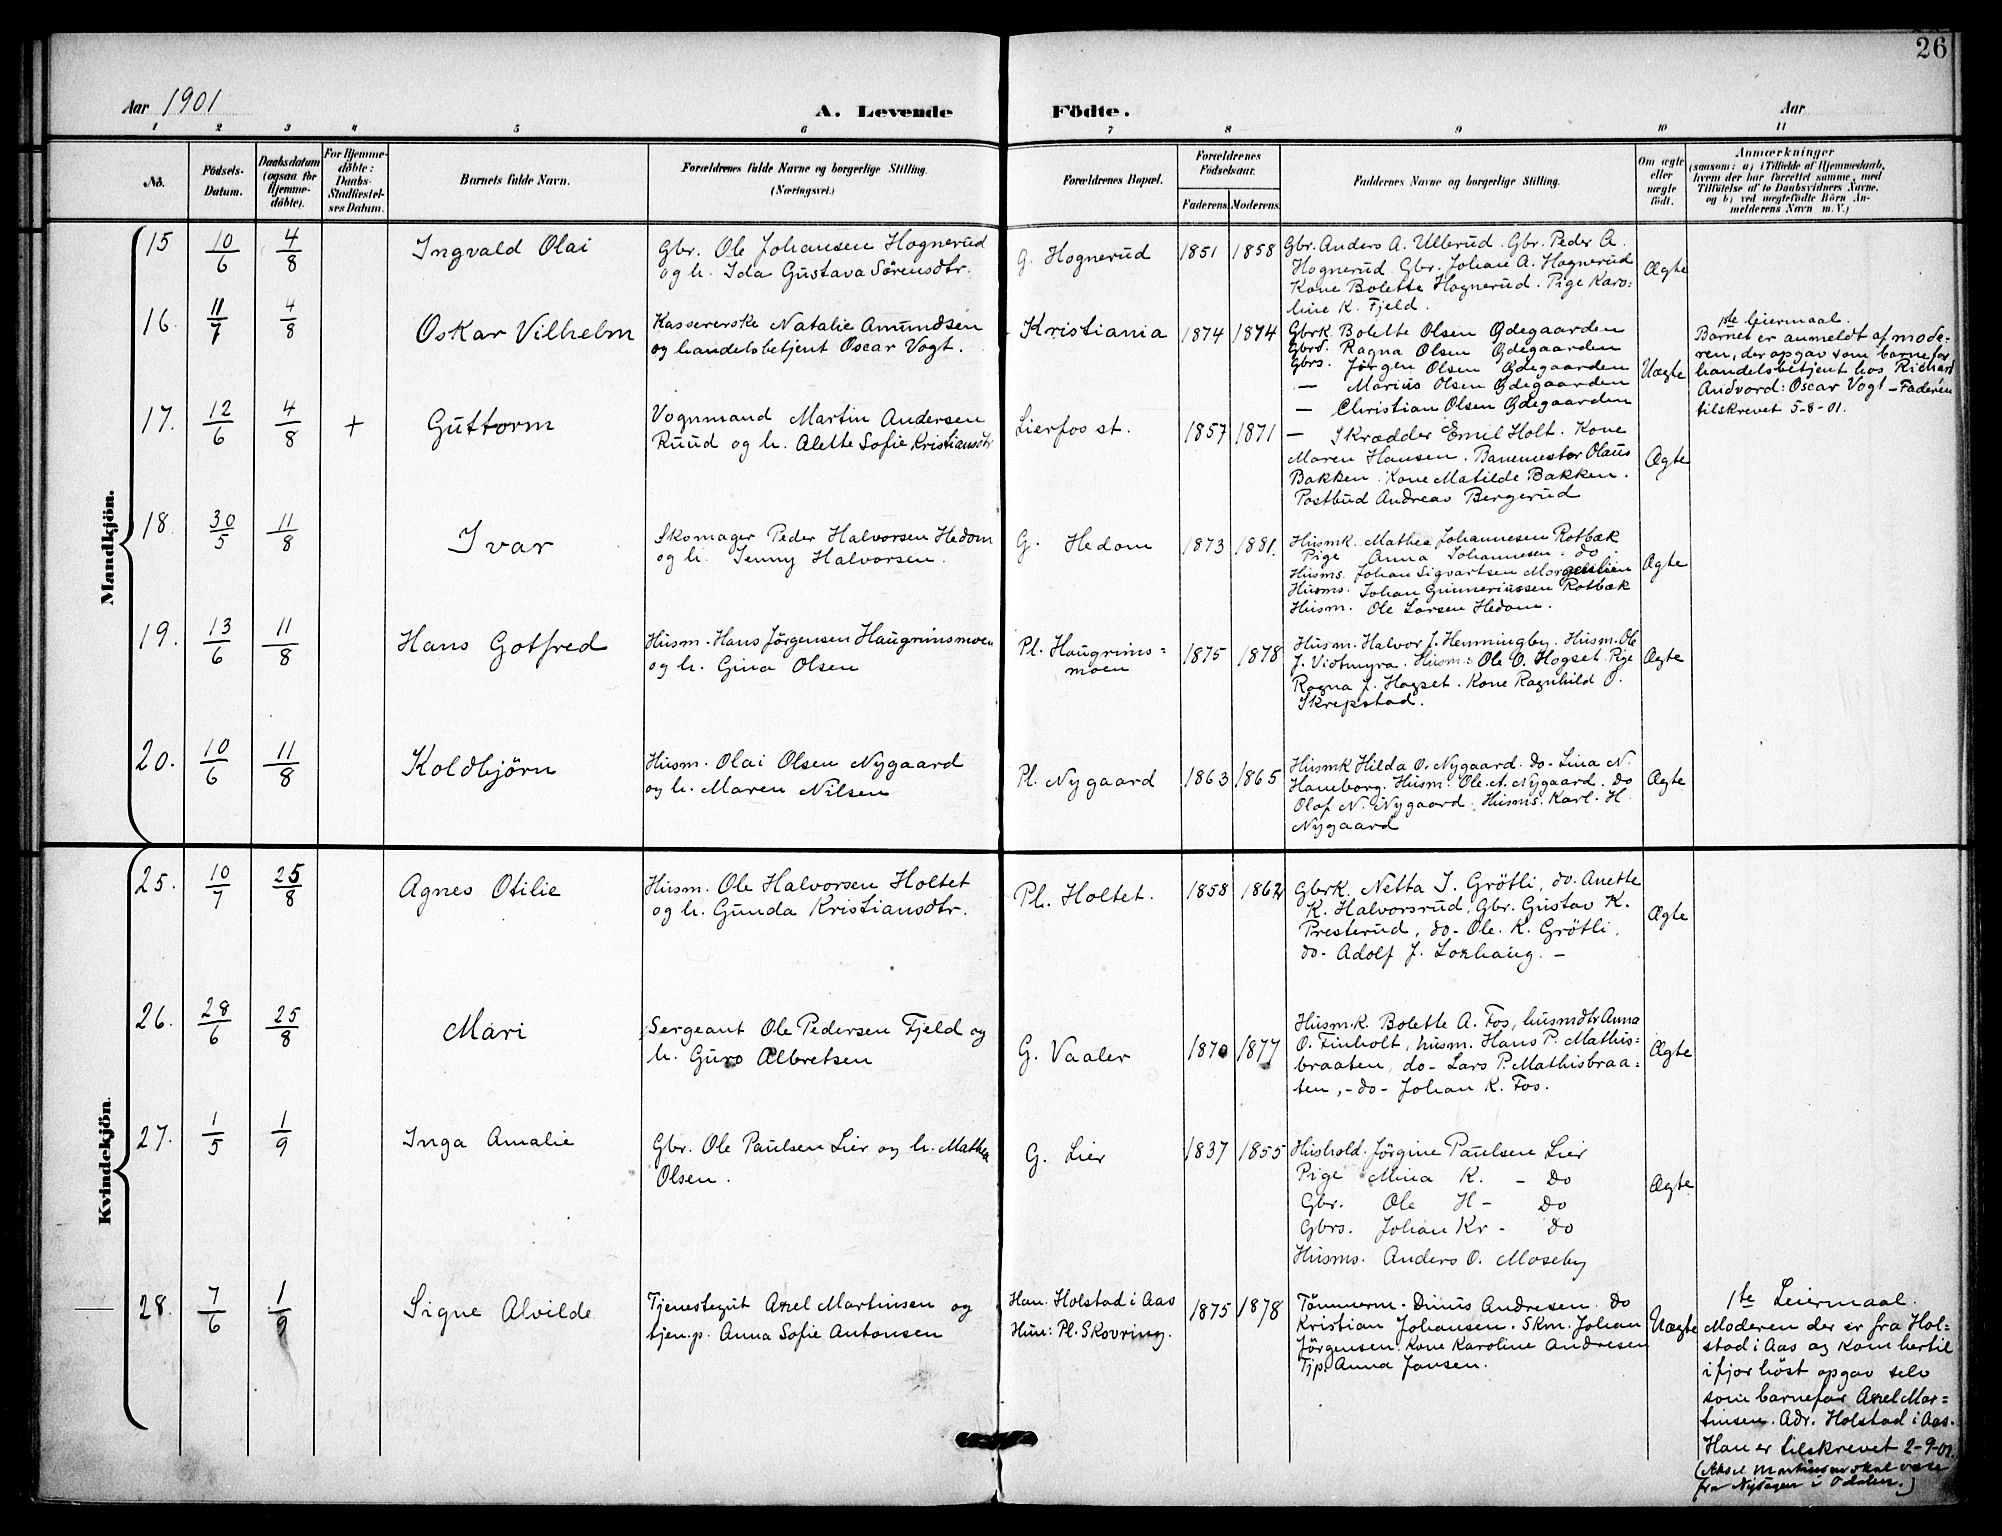 26
Aar 1901
A. Levende Födte.
Aar
1 2 3 4 5 6 7 8 9 10 11
No.
Födsels-Datum.
Daabsdatum (ogsaa for Hjemme-döbte).
For Hjemme-döbte: Daabs-Stadfæstel-ses Datum.
Barnets fulde Navn.
Forældrenes fulde Navne og borgerlige Stilling.
(Næringsvei.)
Forældrenes Bopæl.
Forældrenes Födselsaar.
Faderens. Moderens.
Faddernes Navne og borgerlige Stilling.
Om ægte eller uægte födt.
Anmærkninger
(saasom: a) i Tilfælde af Hjemmedaab,
hvem der har forrettet samme, med
Tilföielse af to Daabsvidners Navne.
og b) ved uægtefödte Börn An-
melderens Navn m. V.)
Mandkjön.
15 10/6 4/8 Ingvald Olai
Gbr. Ole Johansen Hognerud
og h. Ida Gustava Sörensdtr.
G. Hognerud 1851 1858
Gbr. Anders A. Ullerud. Gbr. Peder A.
Hognerud. Gbr. Johan A. Hognerud
Kone Bolette Hognerud. Pige Karo=
line K. Fjeld.
Ægte
16. 11/7 4/8 Oskar Vilhelm
Kassererske Natalie Amundsen
og handelsbetjent Oscar Vogt.
Kristiania 1874 1874
Gbrk. Bolette Olsen Ødegaarden
Gbrd. Ragna Olsen Ødegaarden
Gbrs. Jörgen Olsen Ødegaarden
— Marius Olsen Ødegaarden
— Christian Olsen Ødegaarden
Uægte
1ste leiermaal.
Barnet er anmeldt af mode-
ren, der opgav som barnefar
handelsbetjent hos Richard
Andvord: Oscar Vogt – Faderen
tilskrevet 5-8-01.
17. 12/6 4/8 + Guttorm
Vognmand Martin Andersen
Ruud og h. Alette Sofie Kristiansdtr
Lierfos st. 1857 1871
— Skrædder Emil Holt. Kone
Maren Hansen. Banemester Olaus
Bakken. Kone Matilde Bakken.
Postbud Andreas Bergerud
Ægte
18. 30/5 11/8 Ivar
Skomager Peder Halvorsen Hedom
og h. Jenny Halvorsen.
G. Hedom 1873 1881.
Husmk. Mathea Johannesen Rotbæk
Pige Anna Johannesen. do.
Husms. Johan Sigvartsen
Husms. Johan Gunneriussen Rotbæk
Husm. Ole Larsen Hedom.
Ægte
19. 13/6 11/8 Hans Gotfred
Husm. Hans Jörgensen Haugrimsmoen
og h. Gina Olsen
Pl. Haugrims=
moen 1875 1878
Husm. Halvor J. Henningby. Husm. Ole
J. Vistmyra. Husm: Ole O. Hogset. Pige
Ragna J. Hogset. Kone Ragnhild O.
Skrepstad.
Ægte
20. 10/6 11/8 Koldbjörn
Husm. Olai Olsen Nygaard
og h. Maren Nilsen
Pl. Nygaard 1863 1865
Husmk Hilda O. Nygaard. do- Lina N.
Haneborg. Husm. Ole. A. Nygaard. Do
Olaf N. Nygaard. Husms. Karl. H.
Nygaard
Ægte
Kvindekjön.
25. 10/7 25/8 Agnes Otilie
Husm. Ole Halvorsen Holtet
og h. Gunda Kristiansdtr.
Pl. Holtet. 1858 1862
Gbrk. Netta I. Grötli, do. Anette
K. Halvorsrud, Gbr. Gustav K.
Presterud, do- Ole. K. Grötli.
do- Adolf J. Loshaug. —
Ægte
26. 28/6 25/8 Mari
Sergeant Ole Pedersen Fjeld og
h. Guro Albretsen
G. Vaaler 1870 1877
Husm.k. Bolette A. Fos, husmdtr Anna
O. Finholt, husm. Hans P. Mathis=
braaten, do- Lars P. Mathisbraa=
ten, - do- Johan K. Fos.
Ægte
27. 1/5 1/9 Inga Amalie
Gbr. Ole Paulsen Lier og h. Mathea
Olsen.
G. Lier 1837 1855
Hushold. Jörgine Paulsen Lier
Pige Mina K. - Do
Gbr. Ole H- Do
Gbrs. Johan Kr- Do
Husms. Anders O. Moseby
Ægte
28. 7/6 1/9 Signe Alvilde
Tjenestegut Axel Martinsen og
tjen.p. Anna Sofie Antonsen
Han. Holstad i Aas
Hun: Pl. Skovring. 1875 1878
Tömmerm. Dinus Andresen. do
Kristian Johansen. Skm. Johan
Jörgensen. Kone Karoline Andresen
Tjp. Anna Jansen.
Uægte
1ste Leiermaal.
Moderen der er fra Hol=
stad i Aas og kom hertil
i fjor höst opgav selv
som barnefar Axel Mar=
tinsen. Adr. Holstad i Aas.
Han er tilskrevet 2-9-01.
(Aksel Martinsen skal være
fra i Odalen.)